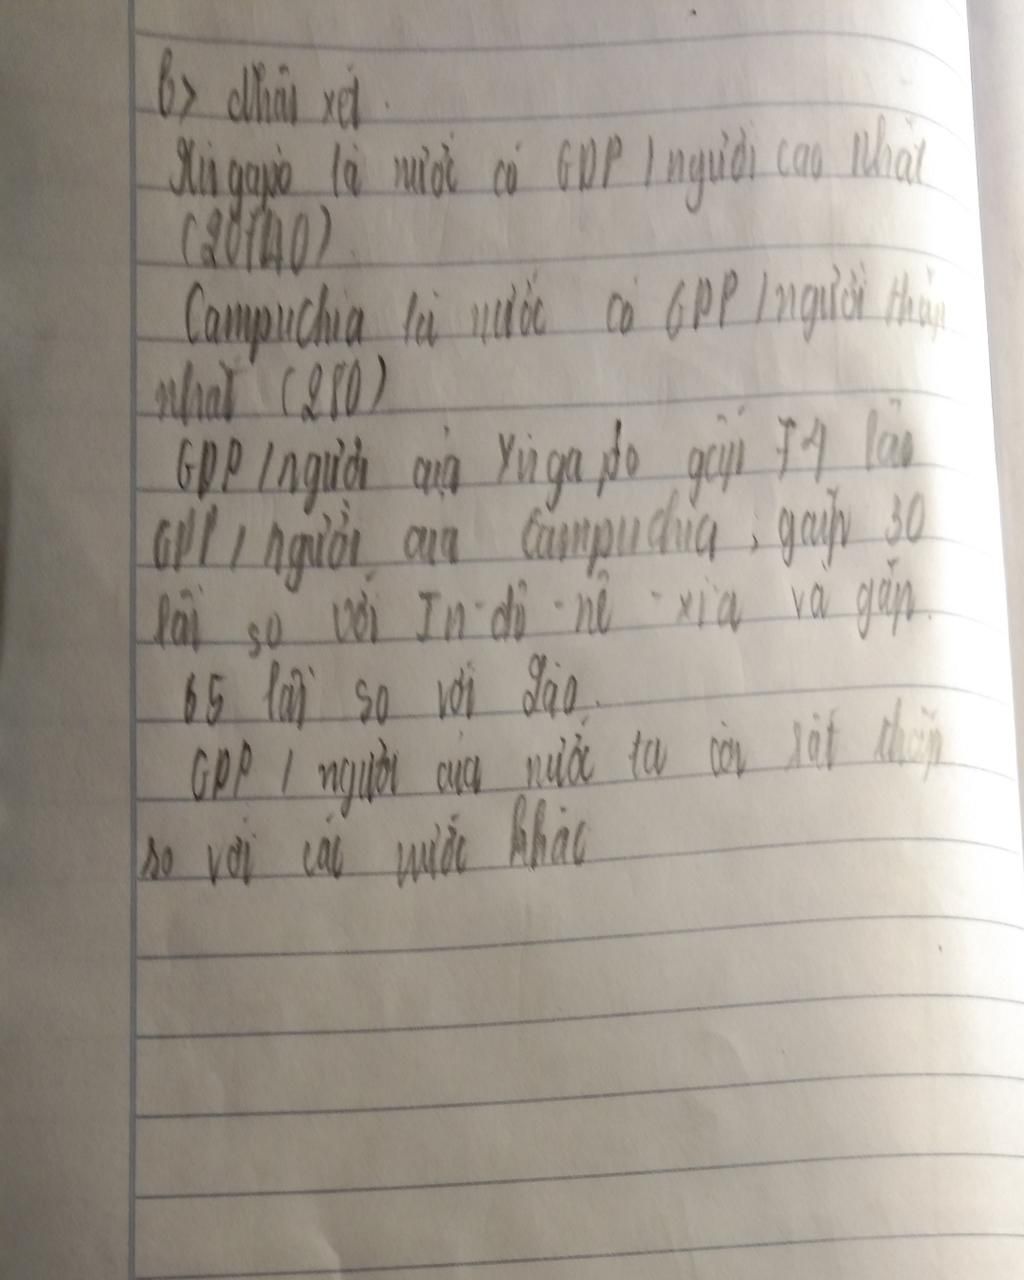 b> Nhận xét.
Xingapo là nước có GDP / người cao nhất
(20740)
Campuchia là nước có GDP / người thấp
nhất (280)
GDP / người của Xingapo gấp 74 lần
GDP / người của Campuchia, gấp 30
lần so với In-đô-nê-xia và gấp
65 lần so với Lào.
GDP / người của nước ta còn rất thấp
so với các nước khác